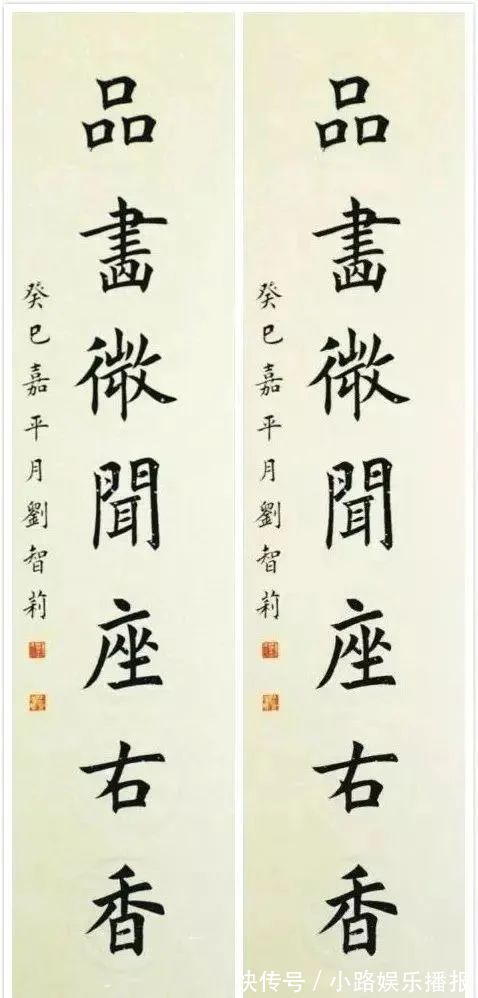 品畫微聞座右香
癸巳嘉平月劉智莉
品畫微聞座右香
癸巳嘉平月劉智莉
快传号/小路娱乐播报